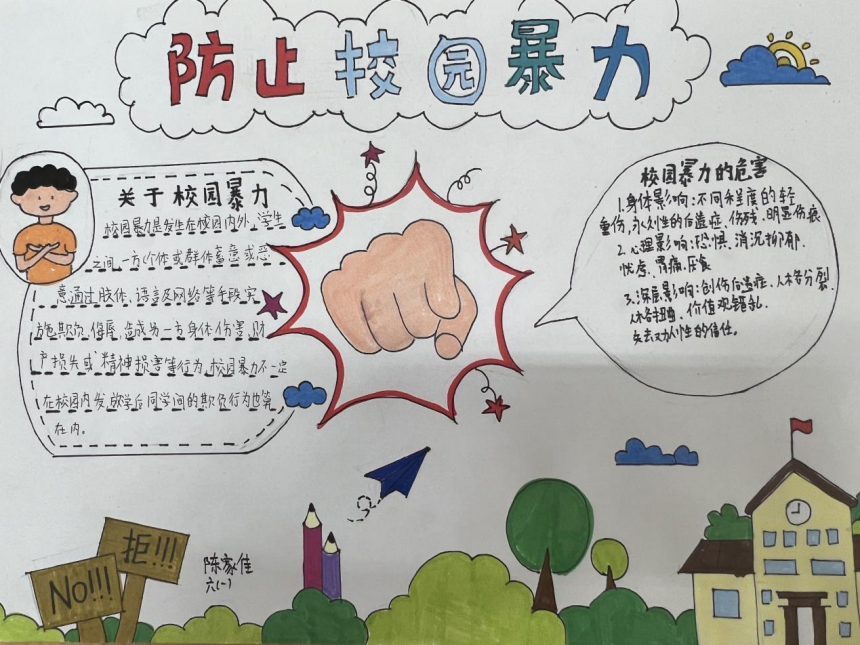 防止校园暴力
关于校园暴力
校园暴力是发生在校园内外,学生
之间,一方(个体或群体)蓄意或恶
意通过肢体、语言及网络等手段实
施欺负、侮辱,造成另一方身体伤害、财
产损失或精神损害等行为,校园暴力不一定
在校园内发,放学后同学间的欺负行为也算
在内。
校园暴力的危害
1.身体影响:不同程度的轻
重伤,永久性的后遗症、伤残、明显伤痕
2.心理影响:恐惧、消沉抑郁、
忧虑、胃痛、厌食
3.深层影响:创伤后遗症、人格分裂、
人格扭曲、价值观错乱、
失去对人性的信任。
NO!!!
拒!!!
陈家佳
六(一)